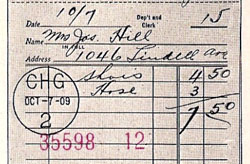 Date 10/7 Dep't and Clerk 15
Name Mrs Jos. Hill
IN FULL
Address 1046 Lindell Ave
Shoes 4 50
Hose 3
7 50
CHG
OCT-7-09
2
35598 12